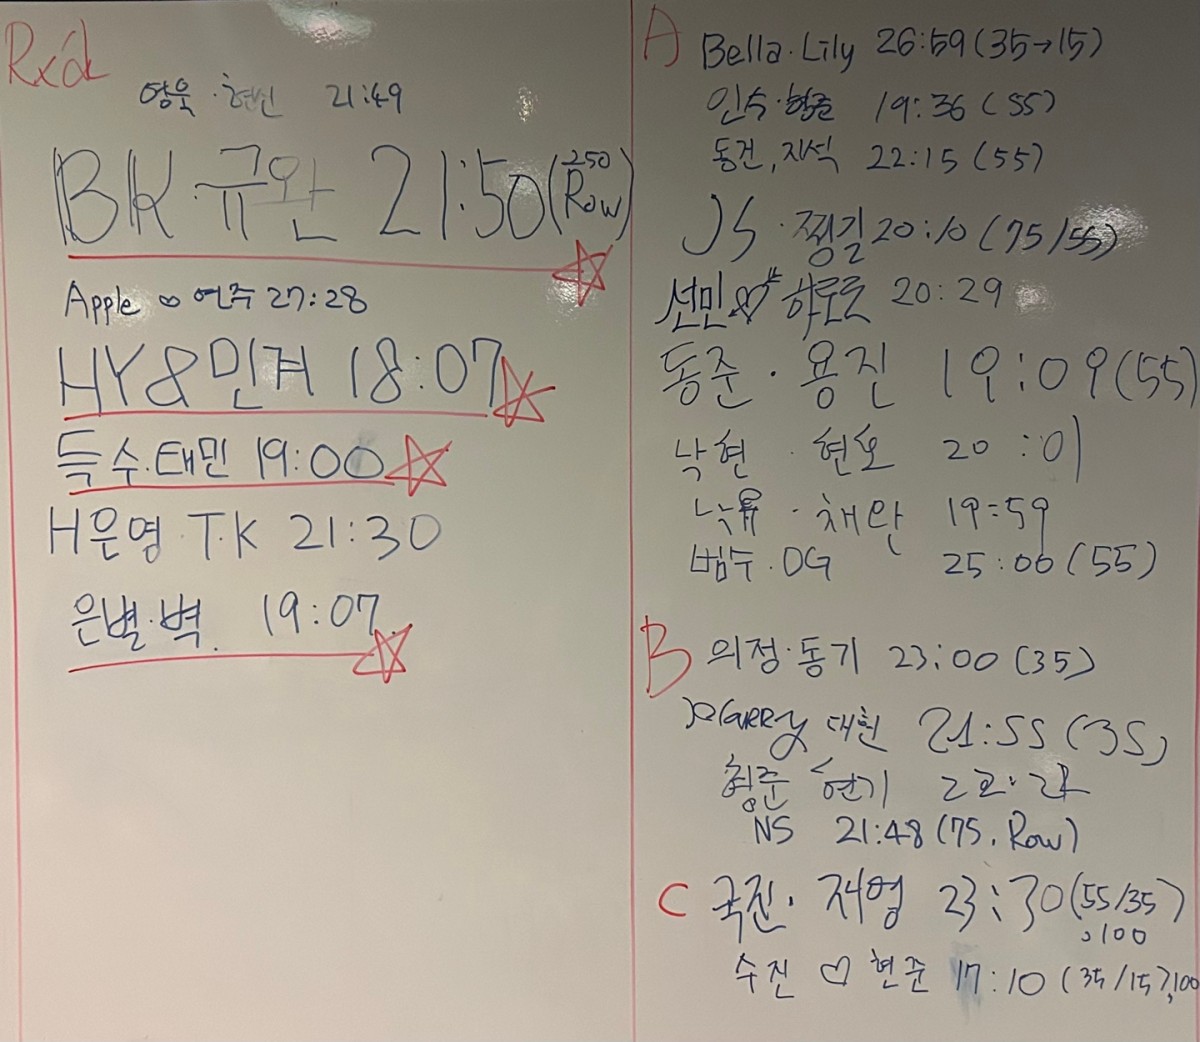 Rxd
영욱 · 현신 21:49
BK · 규완 21:50 (250 Row)
Apple ♡ 연주 27:28
HY & 민겨 18:07
득수 · 태민 19:00
H은영 · T.K 21:30
은별 · 벽 19:07
A
Bella · Lily 26:59 (35→15)
인수 · 19:36 (55)
동건, 지석 22:15 (55)
JS · 찡길 20:10 (75/55)
선민 ♡ 하루 20:29
동준 · 용진 19:09 (55)
낙현 · 현호 20:01
· 채완 19:59
범수 · DG 25:00 (55)
B
의정 · 동기 23:00 (35)
GARRY 대현 21:55 (35)
형준 현기
NS 21:48 (75, Row)
C
국진 · 재영 23:30 (55/35)
, 100
수진 ♡ 현준 17:10 (35/15), 100